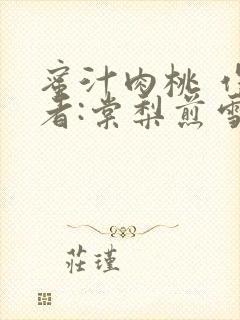 蜜汁肉桃 作
者:棠梨煎雪
莊瑾